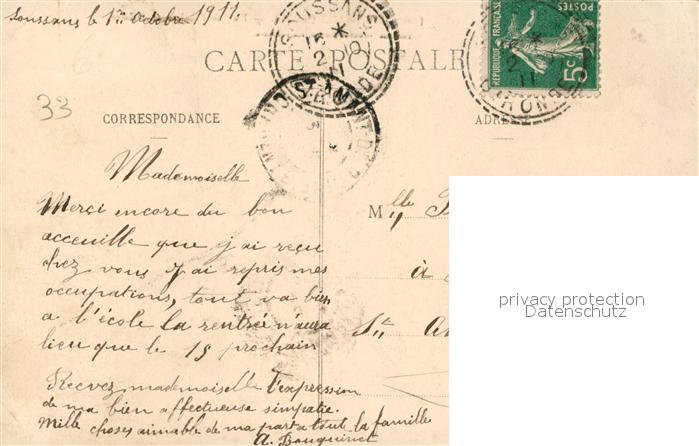 Soussans le 1er octobre 1911.
CARTE POSTALE
SOUSSANS
GIRONDE
RÉPUBLIQUE FRANÇAISE
POSTES
5c
33
CORRESPONDANCE
ADRESSE
Mademoiselle
Merci encore du bon
acceuille que j'ai reçu
chez vous j'ai repris mes
occupations, tout va bien
a l'école la rentrée n'aura
lieu que le 15 prochain
Recevez mademoiselle l'expression
de ma bien affectueuse simpatie.
Mille choses aimable de ma part a tout la famille
A. Bouquinet
Mlle
à
Ste
privacy protection
Datenschutz